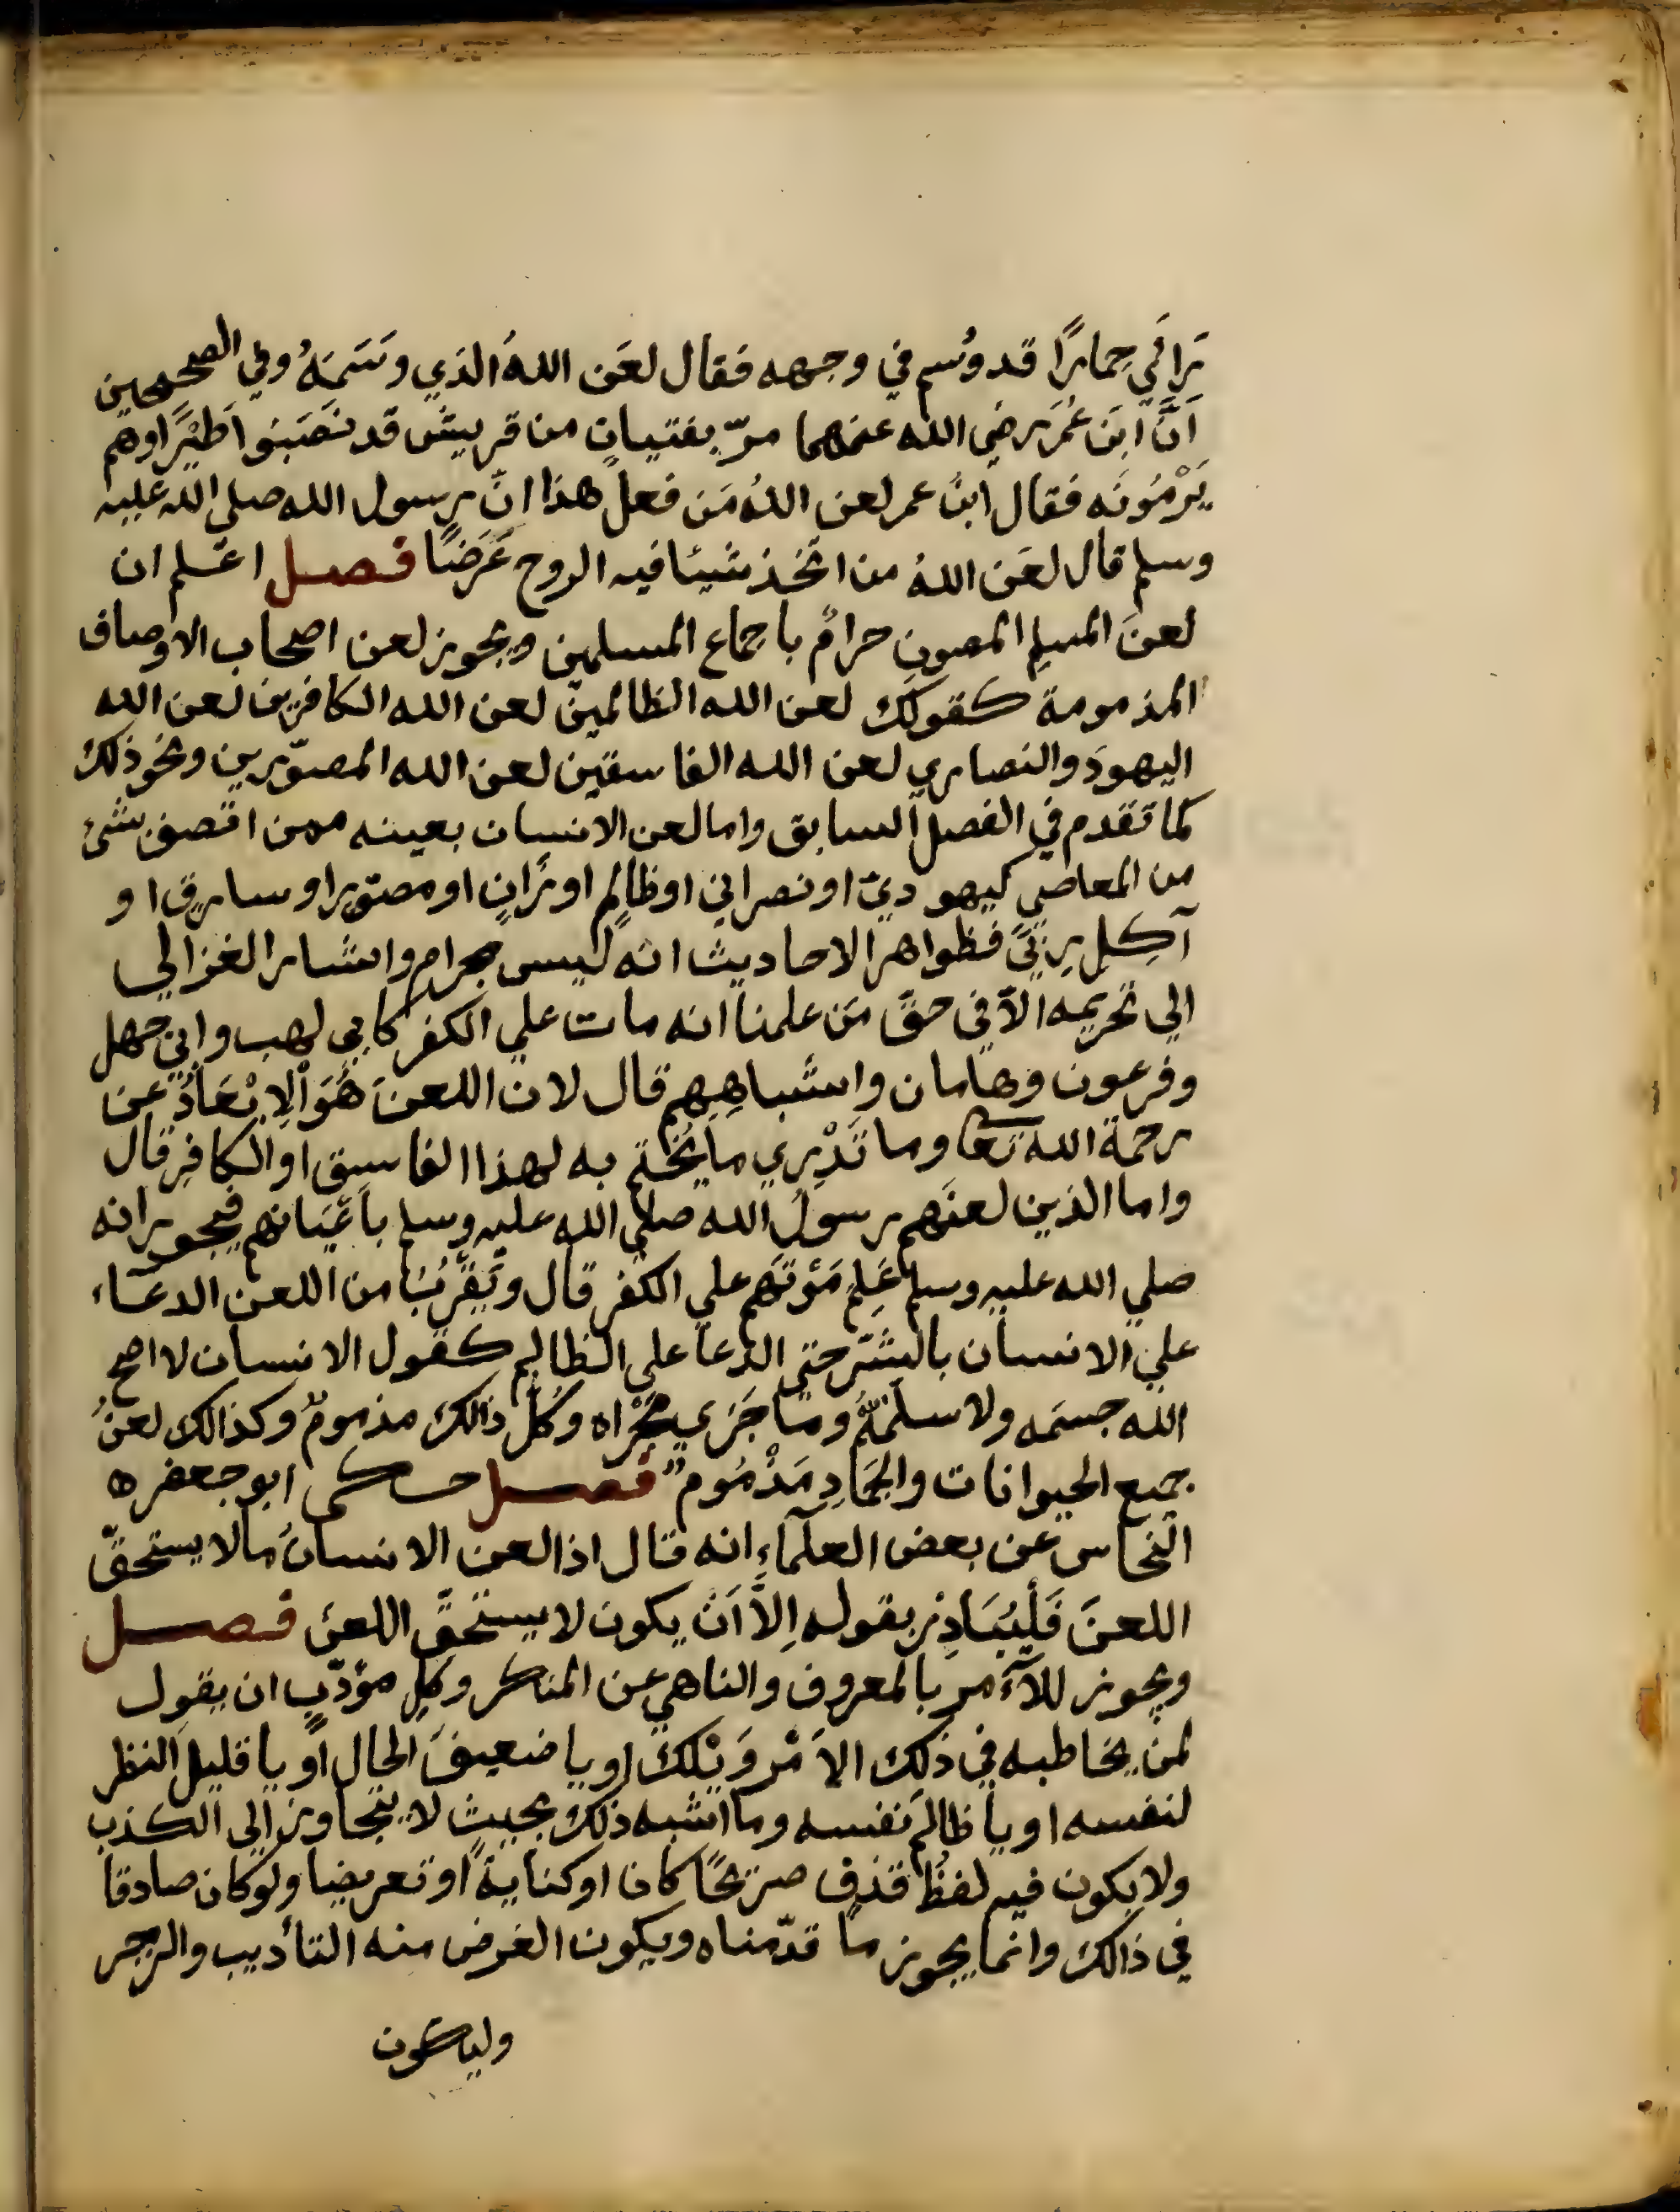 رَأَي حِمارًا قد وُسم في وجهه فقال لعَن اللهُ الذي وسَمَهُ وفي الصحيحين
اَنَّ ابنَ عُمَر رضي الله عنهما مرّ بفتيانٍ من قريش قد نَصَبوا طَيْرًا وهم
يَرْمُونَه فقال ابنُ عمر لعن اللهُ مَن فعلَ هذا انّ رسول الله صلي الله عليه
وسلم قال لعَن اللهُ من اتّخذ شيئا فيه الروح غَرَضًا فصل اعلم ان
لعنَ المسلِم المصونِ حرامٌ باجماع المسلمين ويجوز لعن اصحاب الاوصاف
المذمومة كقولك لعن الله الظالمين لعن الله الكافرين لعن الله
اليهودَ والنصاري لعن الله الفاسقين لعن الله المصوّرين ونحو ذلك
كما تقدم في الفصل السابق واما لعن الانسان بعينه ممن اتصف بشئ
من المعاصي كيهوديّ او نصراني او ظالِم او زَانٍ او مصوّر او سارق او
آكِلِ رِبًي فظواهر الاحاديث انه ليس بحرام واشار الغزالي
الي تحريمه الاّ في حقّ مَن علمنا انه مات علي الكفر كابي لهب وابي جهل
وفرعون وهامان واشباهِهِم قال لان اللعنَ هُوَ الاِبْعَادُ عن
رحمة الله تعا وما نَدْرِي ما يُختم به لهذا الفاسق او الكافِر قال
واما الذين لعنَهم رسولُ الله صلي الله عليه وسلم باَعْيَانهم فيجوز انه
صلي الله عليه وسلم عَلِمَ مَوْتَهم علي الكفر قال ويَقْرُبُ من اللعن الدعَاء
علي الانسان بالشرّ حتي الدعا علي الظالِم كقول الانسان لا اصح
الله جسمَه ولا سلّمهُ وما جَرَي مجْرَاه وكلّ ذالك مذمومٌ وكذالك لعنُ
جميع الحيوانات والجَمَادِ مَذْمُومٌ فصل حكى ابو جعفره
النحاس عن بعض العلَمآءِ انه قال اذا لعن الانسانُ ما لا يستحقّ
اللعنَ فَلْيُبَادِرْ بقوله اِلاَّ اَنْ يكون لا يستحقّ اللعن فصل
ويجوز للآمر بالمعروف والناهي عن المنكر وكلِ مؤدّبٍ ان يقول
لمن يخاطبه في ذلك الاَمْر وَيْلكَ او يا ضعيفَ الحال او يا قليلَ النظر
لنفسه او يا ظالمَ نفسه وما اشبه ذلك بحيث لا يتجاوز الي الكذب
ولا يكون فيه لفظُ قذف صريحًا كان او كنايةً او تعريضا ولو كان صادقا
في ذالك وانما يجوز ما قدّمناه ويكون الغرض منه التأديب والزجر
وليكون